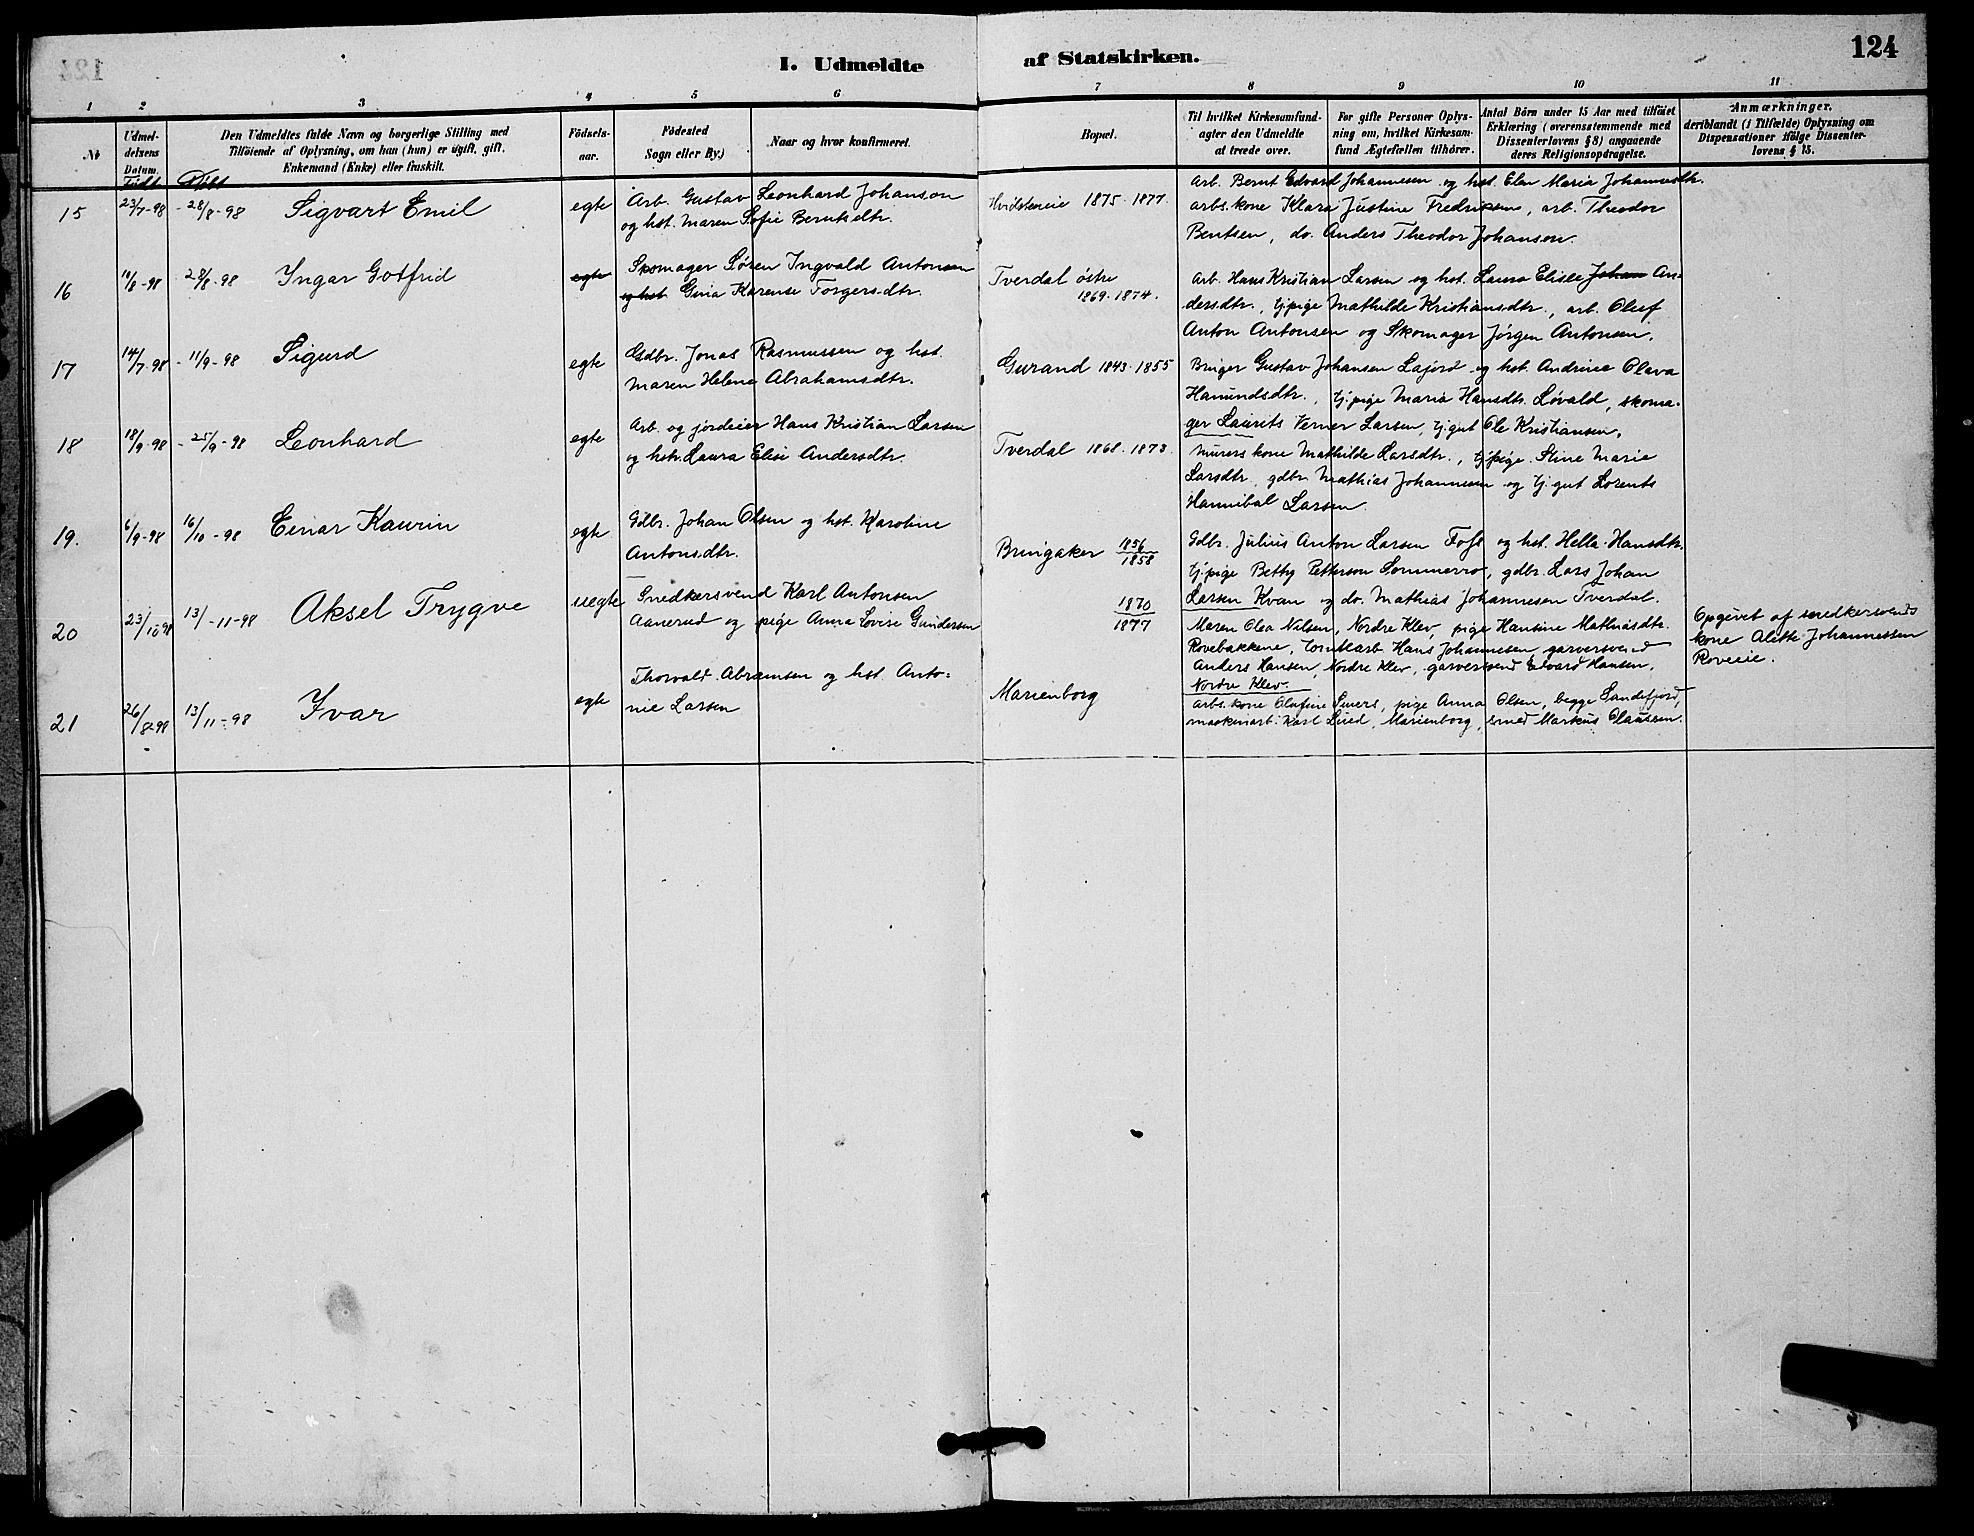 124
I. Udmeldte af Statskirken.
1 2 3 4 5 6 7 8 9 10 11
No
Udmel-
delsens
Datum.
Den Udmeldtes fulde Navn og borgerlige Stilling med
Tilföiende af Oplysning, om han (hun) er ugift, gift,
Enkemand (Enke) eller fraskilt.
Födsels-
aar.
Födested
Sogn eller By.)
Naar og hvor konfirmeret.
Bopæl.
Til hvilket Kirkesamfund-
agter den Udmeldte
at træde over.
For gifte Personer Oplys-
ning om, hvilket Kirkesam-
fund Ægtefællen tilhörer.
Antal Börn under 15 Aar med tilföiet
Erklæring (overensstemmende med
Dissenterlovens § 8) angaaende
deres Religionsopdragelse.
Anmærkninger.
deriblandt (i Tilfælde) Oplysning om
Dispensationer ifölge Dissenter-
lovens § 15.
Födt Döbt
15 23/7-98 - 28/8-98 Sigvart Emil egte
Arb. Gustav Leonhard Johanson
og hst. Maren Sofie Berntsdtr.
Hvidsteneie 1875-1877.
Arb. Bernt Edvard Johannesen og hst. Elen Maria Johannesdtr.
arbs. kone Klara Justine Fredriksen, arb. Theodor
Bentsen, do. Anders Theodor Johanson.
16 10/8-98 - 28/8-98 Yngar Gotfrid egte
Skomager Sören Ingvald Antonsen
og hst. Gina Karense Torgersdtr.
Tverdal östre
1869-1874.
Arb. Hans Kristian Larsen og hst. Laura Elise Johan An-
dersdtr., tj.pige Mathilde Kristiansdtr., arb. Oluf
Anton Antonsen og Skomager Jörgen Antonsen.
17 14/7-98 - 11/9-98 Sigurd egte
Gdbr. Jonas Rasmussen og hst.
Maren Helene Abrahamsdtr.
Gurand 1843-1855
Bruger Gustav Johansen Lajord og hst. Andrine Olava
Hanundsdtr., tj.pige Maria Hansdtr. Lövald, skoma-
ger Laurits Verner Larsen, tj.gut Ole Kristiansen.
18 18/9-98 - 25/9-98 Leonhard egte
Arb. og jordeier Hans Kristian Larsen
og hstr. Laura Elise Andersdtr.
Tverdal 1868-1873.
Murers kone Mathilde Larsdtr., tj.pige Stine Marie
Larsdtr. gdbr. Mathias Johannesen og tj.gut Lorents
Hannibal Larsen
19. 6/9-98 16/10-98 Einar Kaurin egte
Gdbr. Johan Olsen og hst. Karoline
Antonsdtr.
Bringaker 1856
1858
Gdbr. Julius Anton Larsen og hst. Hella Hansdtr.
tj.pige Betty Petterson Sommerro, gdbr. Lars Johan
Larsen Kvan og do. Mathias Johannesen Tverdal.
20 23/10-98 13/-11-98 Aksel Trygve uegte
Snedkersvend Karl Antonsen
Aanerud og pige Anna Lovise Gundersen
1870
1877
Maren Olea Nilsen, Nordre Klev, pige Hansine Mathiasdtr.
Rovebakkene, tomtearb. Hans Johannesen, garversvend
Anders Hansen, Nordre Klev, garversvend Edvard Hansen,
Nordre Klev.
Opgivet af snedkersvends
kone Alette Johannessen
Roveeie.
21 26/8-98 13/11-98 Ivar egte
Thorvald Abramsen og hst. Anto-
nie Larsen
Marienborg
Arbs. kone Olafine Sivers, pige Anna Olsen, begge Sandefjord,
maskinarb. Karl Lund, Marienborg, smed Markus Olaussen.